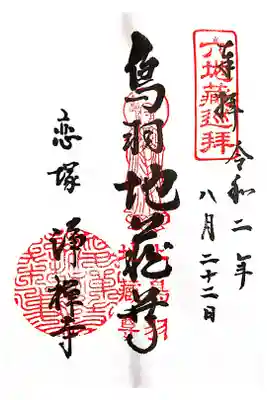 奉拝
六地蔵巡拝
令和二年
八月二十二日
鳥羽地蔵尊
鳥羽
地蔵尊
恋塚
浄禅寺